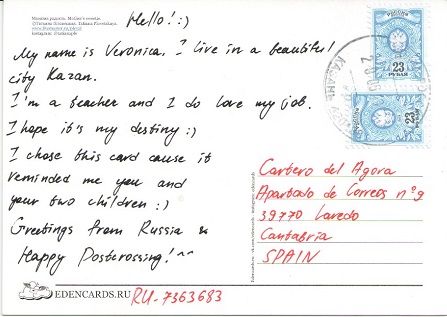 Hello! :)
My name is Veronica, I live in a beautiful
city Kazan.
I'm a teacher and I do love my job.
I hope it's my destiny :)
I chose this card cause it
reminded me you and
your two children :)
Greetings from Russia &
Happy Postcrossing! ^^
РОССИЯ
23
РУБЛЯ
РОССИЯ
23
РУБЛЯ
КАЗАНЬ
Cartero del Agora
Apartado de Correos nº9
39770 Laredo
Cantabria
SPAIN
EDENCARDS.RU
RU-7363683